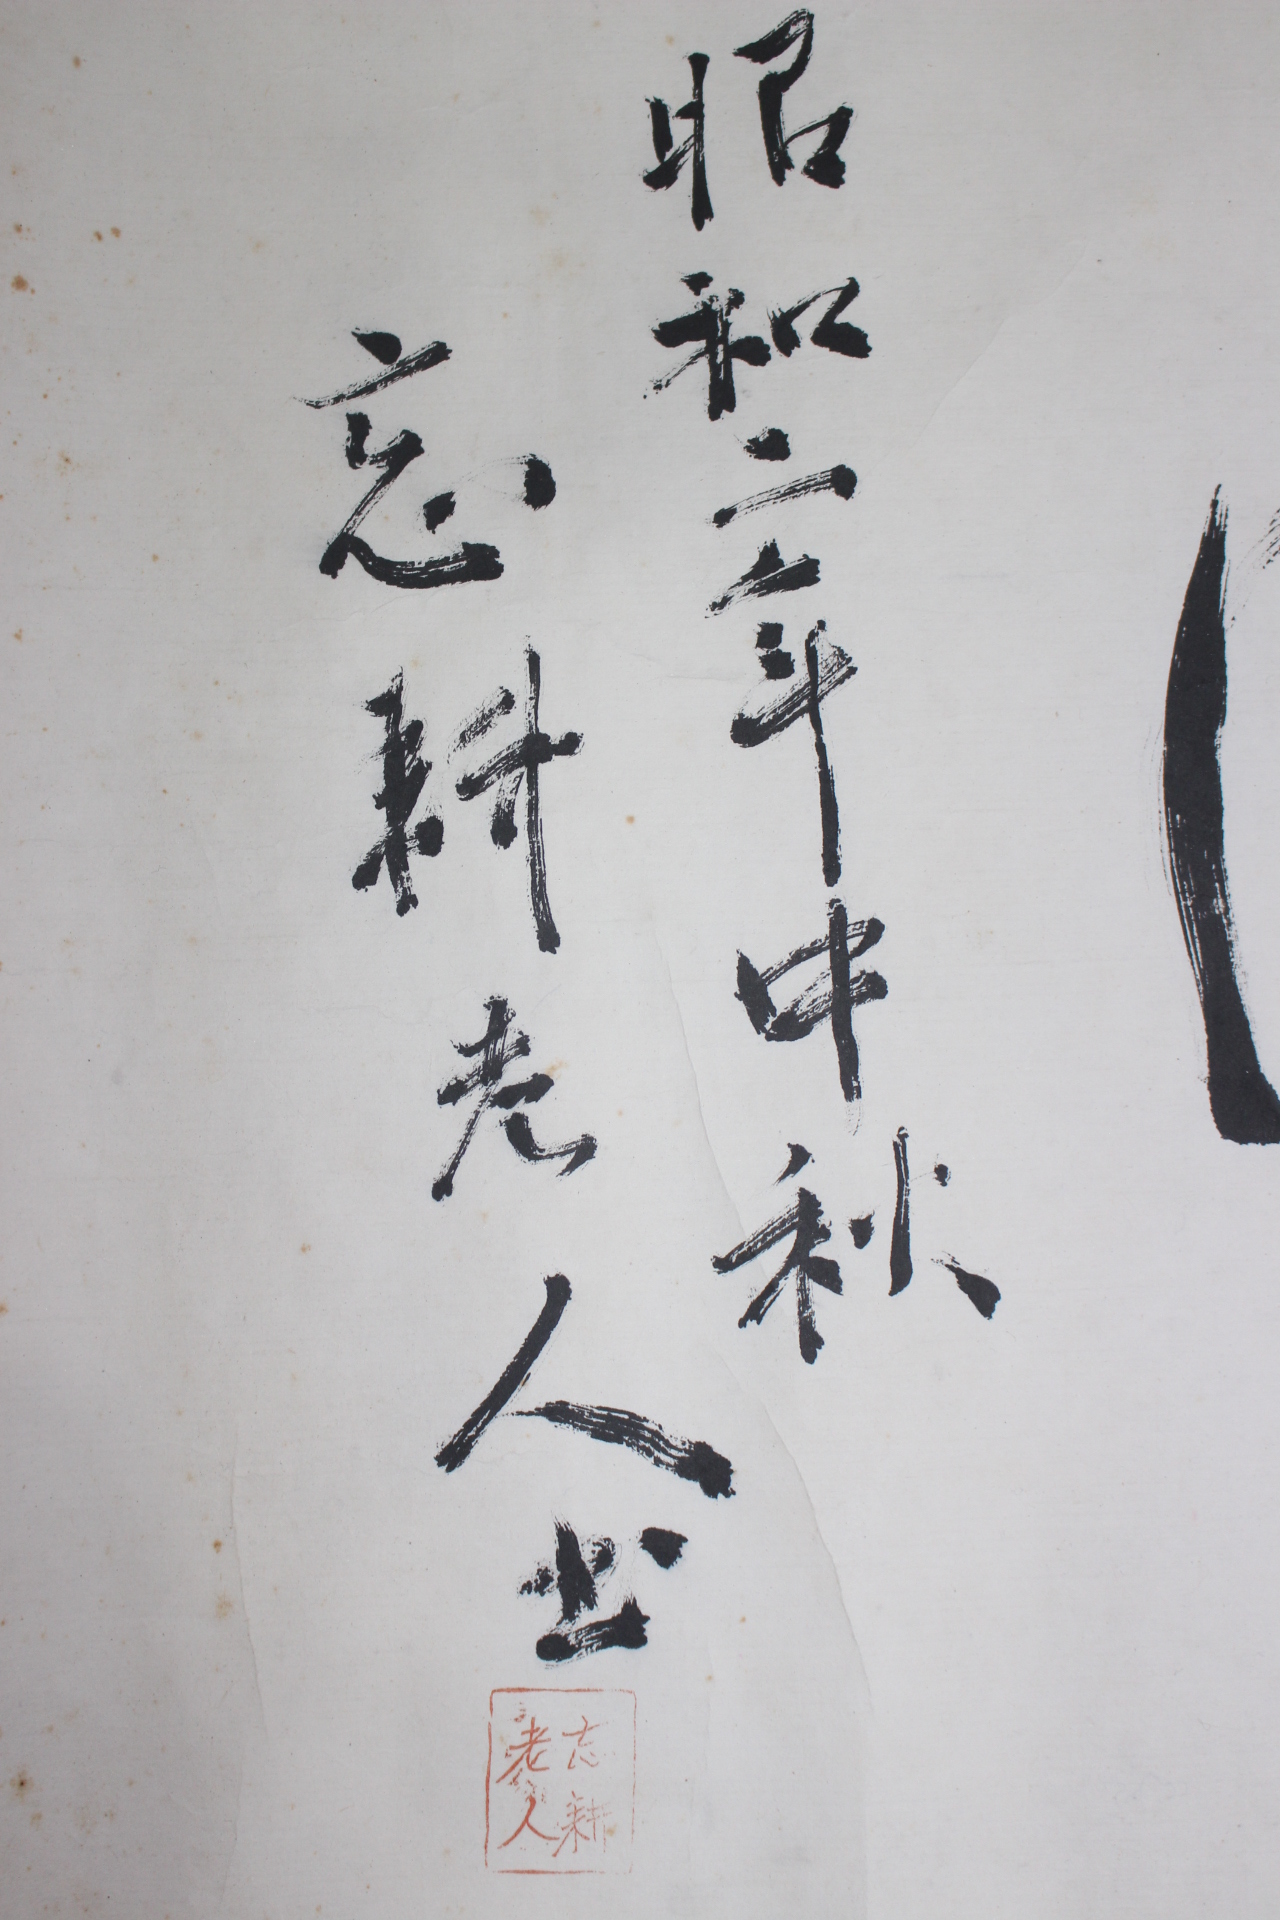 昭和二年中秋
忘耕老人書
忘耕
老人